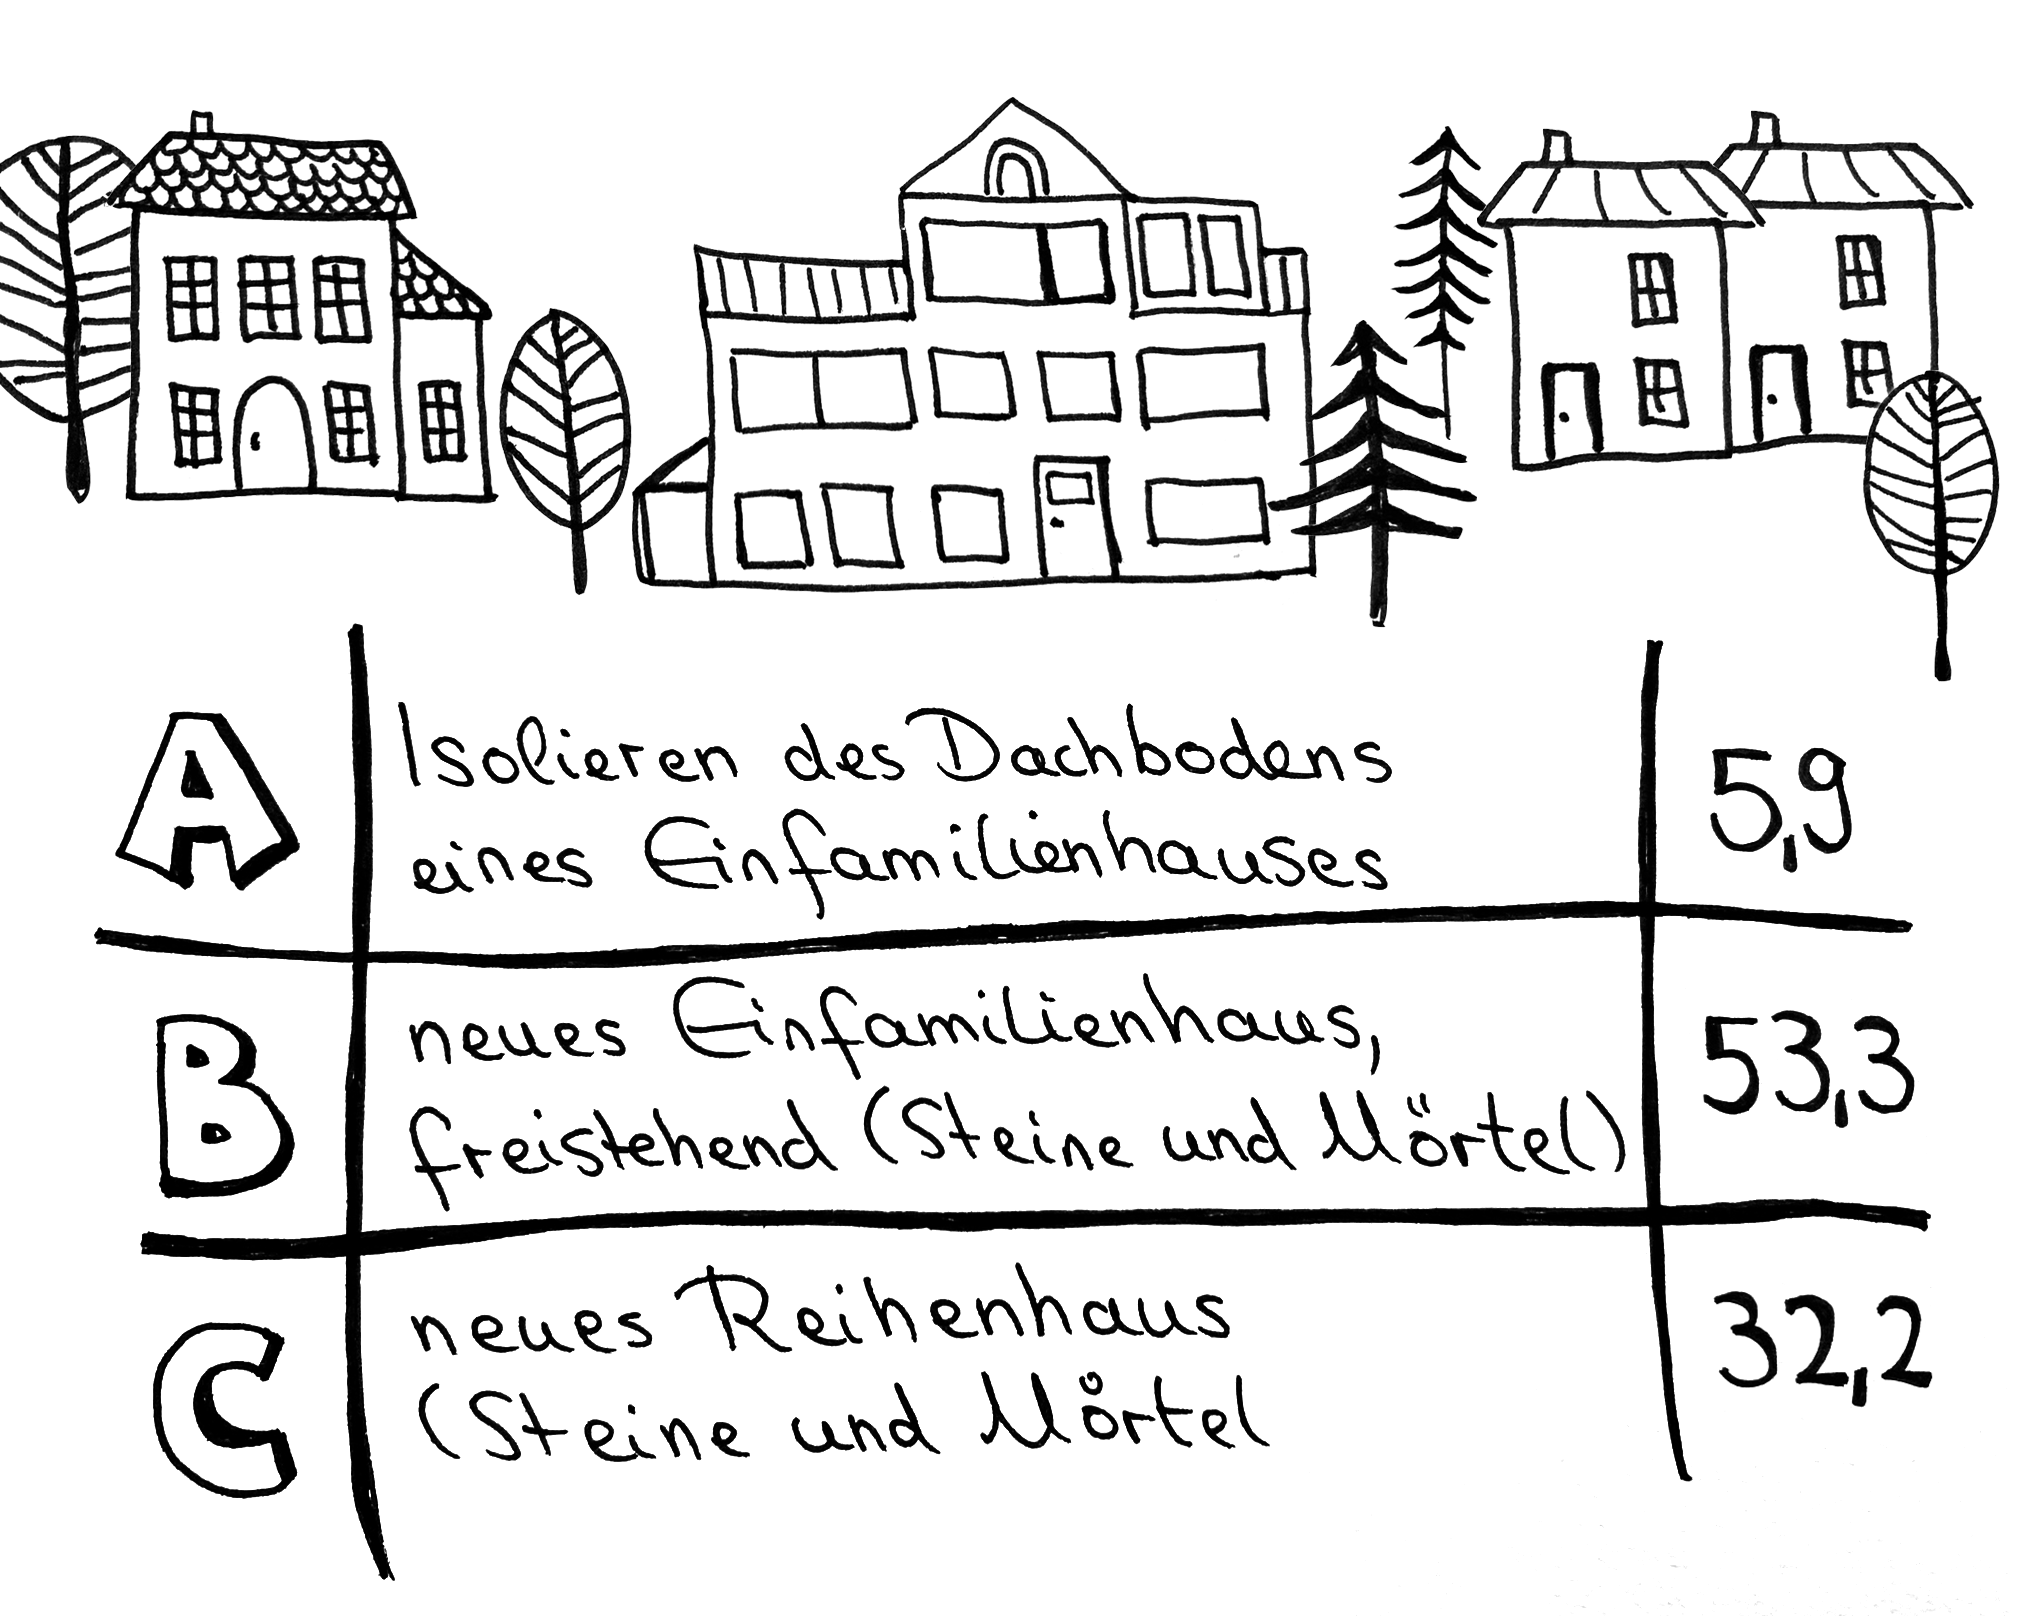 A
Isolieren des Dachbodens
eines Einfamilienhauses
5,9
B
neues Einfamilienhaus,
freistehend (Steine und Mörtel)
53,3
C
neues Reihenhaus
(Steine und Mörtel
32,2